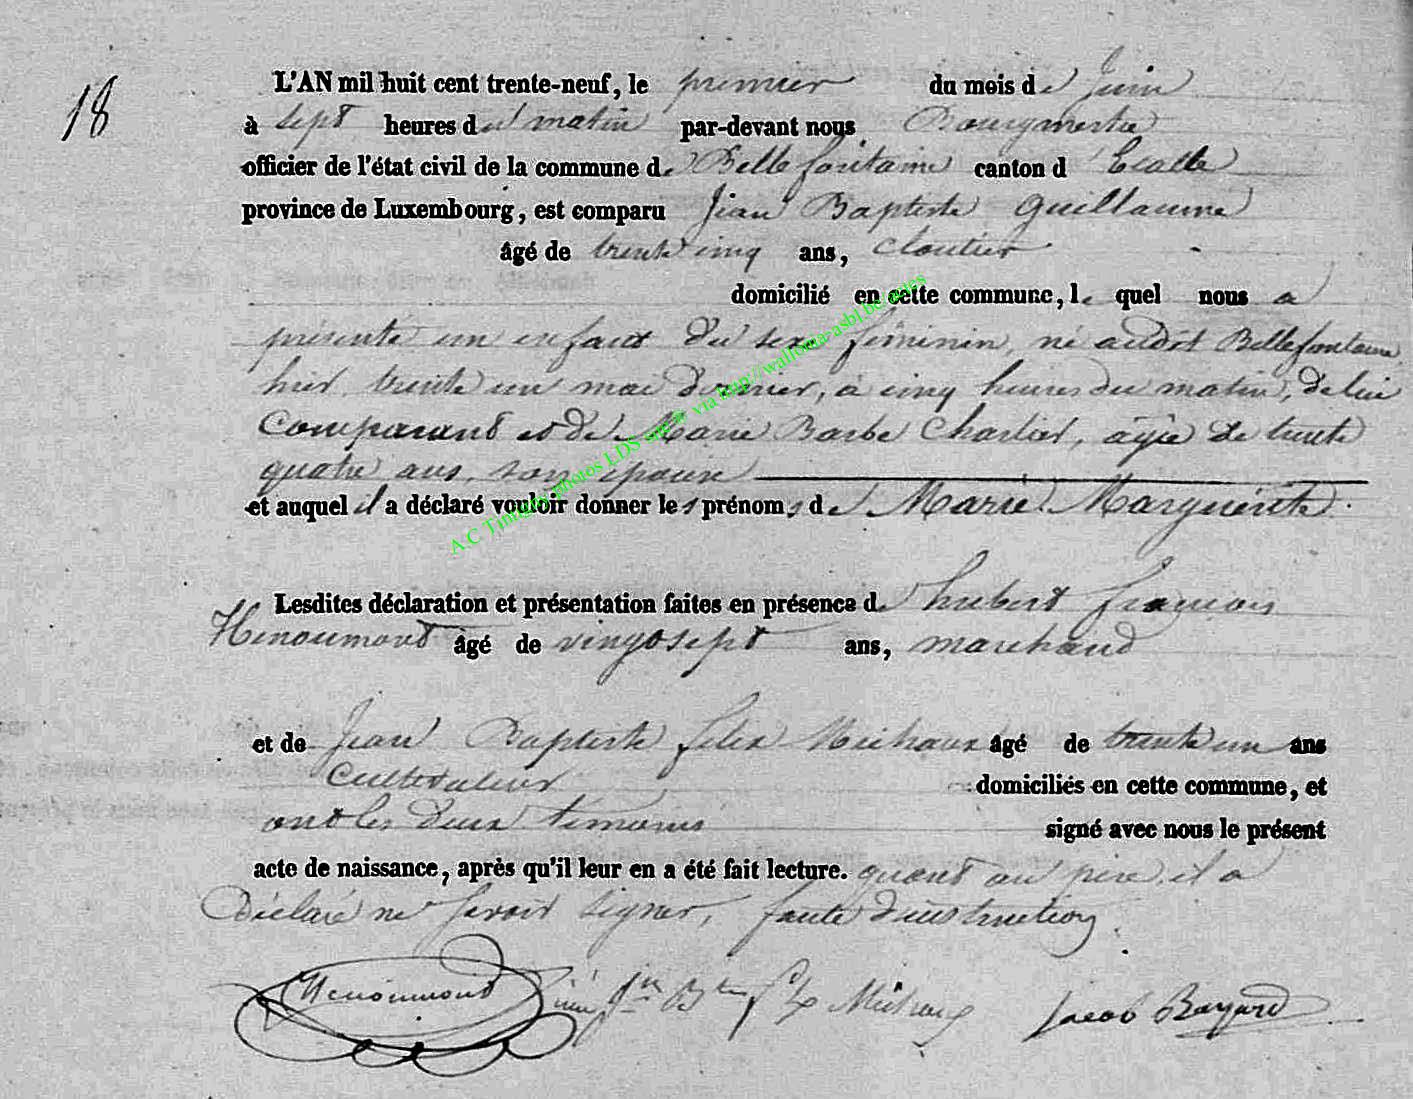 18
L'AN mil huit cent trente-neuf, le premier du mois de Juin
à sept heures du matin par-devant nous Bourgmestre
officier de l'état civil de la commune de Bellefontaine canton d' Etalle
province de Luxembourg, est comparu Jean Baptiste Guillaume
âgé de trente cinq ans, cloutier
domicilié en cette commune, le quel nous a
présenté un enfant du sexe féminin, né audit Bellefontaine
hier trente un mai dernier, à cinq heures du matin, de lui
Comparant et de Marie Barbe Charlier, agée de trente
quatre ans, son épouse
et auquel il a déclaré vouloir donner les prénoms de Marie Marguerite.
Lesdites déclaration et présentation faites en présence de hubert françois
Henoumont âgé de vingt sept ans, marchand
et de Jean Baptiste felix Michaux âgé de trente un ans
Cultivateur domiciliés en cette commune, et
ont les deux témoins signé avec nous le présent
acte de naissance, après qu'il leur en a été fait lecture. quant au père, il a
Déclaré ne savoir signer, faute d'instruction.
Henoumont Jn Bte Flx Michaux Jacob Bayard
A C Tintigny photos LDS sur via http://wallonia-asbl.be/actes